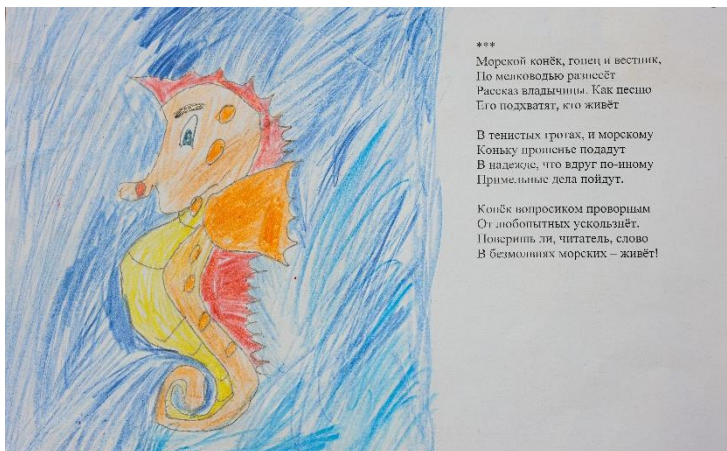 ***
Морской конёк, гонец и вестник,
По мелководью разнесёт
Рассказ владычицы. Как песню
Его подхватят, кто живёт
В тенистых гротах, и морскому
Коньку прошенье подадут
В надежде, что вдруг по-иному
Примельные дела пойдут.
Конёк вопросиком проворным
От любопытных ускользнёт.
Поверишь ли, читатель, слово
В безмолвиях морских – живёт!